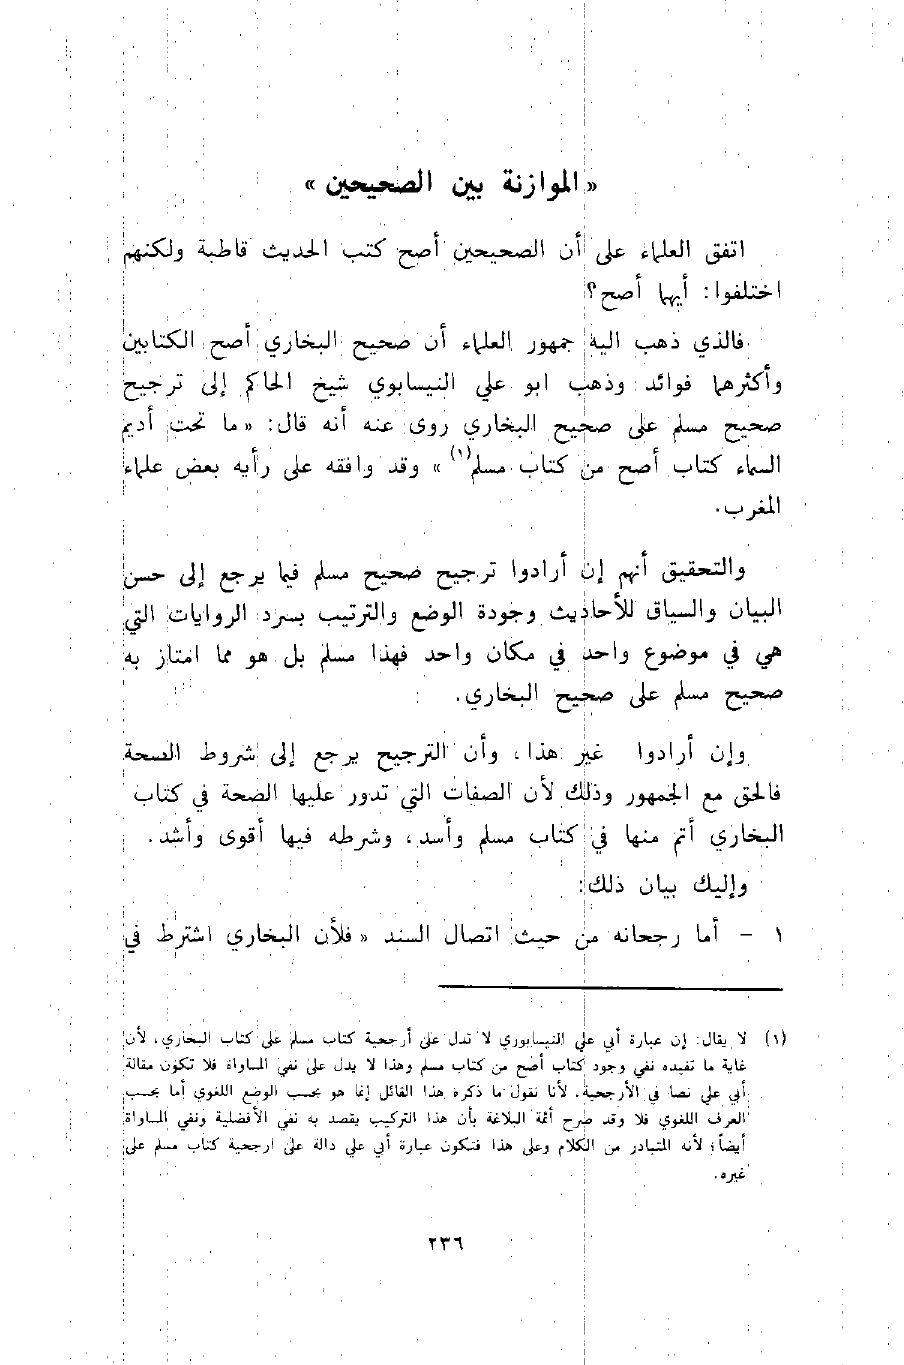 « الموازنة بين الصحيحين »
اتفق العلماء على أن الصحيحين أصح كتب الحديث قاطبة ولكنهم
اختلفوا: أيهما أصح؟
فالذي ذهب اليه جمهور العلماء أن صحيح البخاري أصح الكتابين
وأكثرهما فوائد وذهب ابو علي النيسابوي شيخ الحاكم إلى ترجيح
صحيح مسلم على صحيح البخاري روى عنه أنه قال: « ما تحت أديم
السماء كتاب أصح من كتاب مسلم(١) » وقد وافقه على رأيه بعض علماء
المغرب.
والتحقيق أنهم إن أرادوا ترجيح صحيح مسلم فيما يرجع إلى حسن
البيان والسياق للأحاديث وجودة الوضع والترتيب بسرد الروايات التي
هي في موضوع واحد في مكان واحد فهذا مسلم بل هو مما امتاز به
صحيح مسلم على صحيح البخاري.
وإن أرادوا غير هذا، وأن الترجيح يرجع إلى شروط الصحة
فالحق مع الجمهور وذلك لأن الصفات التي تدور عليها الصحة في كتاب
البخاري أتم منها في كتاب مسلم وأسد، وشرطه فيها أقوى وأشد.
وإليك بيان ذلك:
١ - أما رجحانه من حيث اتصال السند « فلأن البخاري اشترط في
(١) لا يقال: إن عبارة أبي علي النيسابوري لا تدل على أرجحية كتاب مسلم على كتاب البخاري، لأن
غاية ما تفيده نفي وجود كتاب أصح من كتاب مسلم وهذا لا يدل على نفي المساواة فلا تكون مقالة
أبي علي نصا في الأرجحية، لأنا نقول ما ذكره هذا القائل إنما هو بحسب الوضع اللغوي أما بحسب
العرف اللغوي فلا وقد صرح أئمة البلاغة بأن هذا التركيب يقصد به نفي الأفضلية ونفي المساواة
أيضاً؛ لأنه المتبادر من الكلام وعلى هذا فتكون عبارة أبي علي دالة على ارجحية كتاب مسلم على
غيره.
٢٣٦